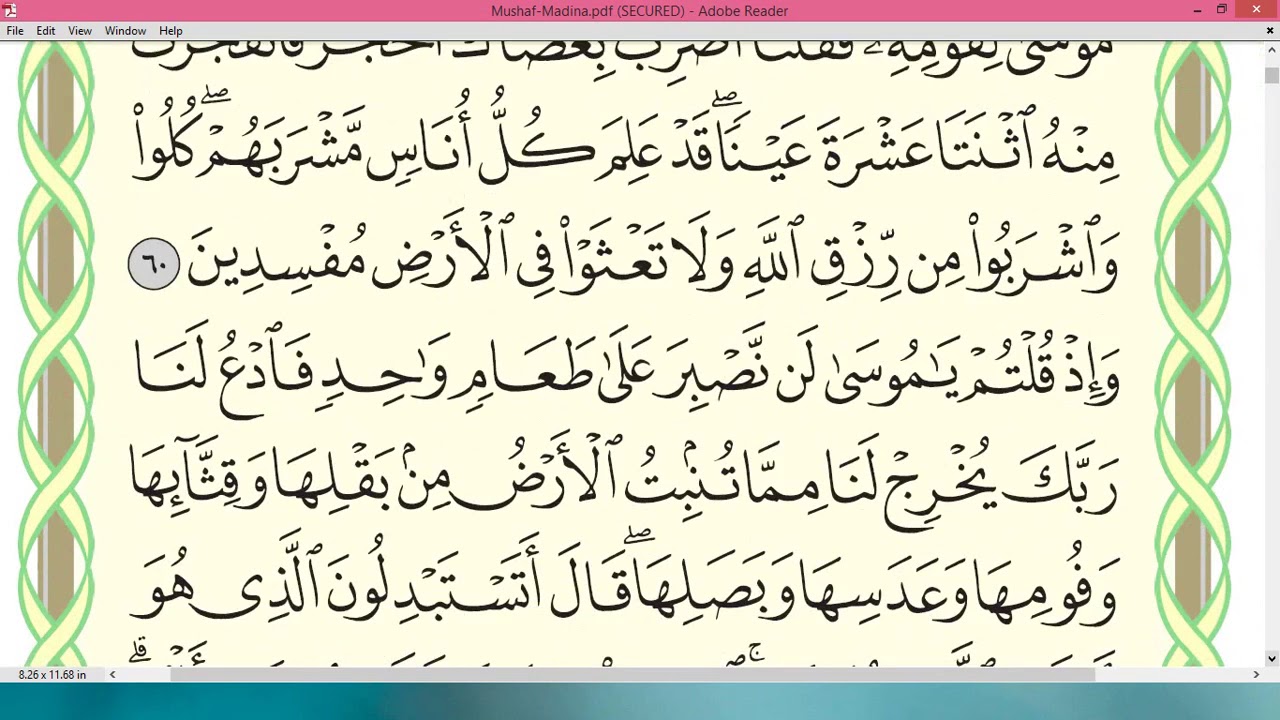 Mushaf-Madina.pdf (SECURED) - Adobe Reader
File Edit View Window Help
مُوسَىٰ لِقَوْمِهِۦ فَقُلْنَا ٱضْرِب بِّعَصَاكَ ٱلْحَجَرَ فَٱنفَجَرَتْ
مِنْهُ ٱثْنَتَا عَشْرَةَ عَيْنًاۖ قَدْ عَلِمَ كُلُّ أُنَاسٍ مَّشْرَبَهُمْۖ كُلُوا۟
وَٱشْرَبُوا۟ مِن رِّزْقِ ٱللَّهِ وَلَا تَعْثَوْا۟ فِى ٱلْأَرْضِ مُفْسِدِينَ ٦٠
وَإِذْ قُلْتُمْ يَٰمُوسَىٰ لَن نَّصْبِرَ عَلَىٰ طَعَامٍ وَٰحِدٍ فَٱدْعُ لَنَا
رَبَّكَ يُخْرِجْ لَنَا مِمَّا تُنۢبِتُ ٱلْأَرْضُ مِنۢ بَقْلِهَا وَقِثَّآئِهَا
وَفُومِهَا وَعَدَسِهَا وَبَصَلِهَاۖ قَالَ أَتَسْتَبْدِلُونَ ٱلَّذِى هُوَ
8.26 x 11.68 in